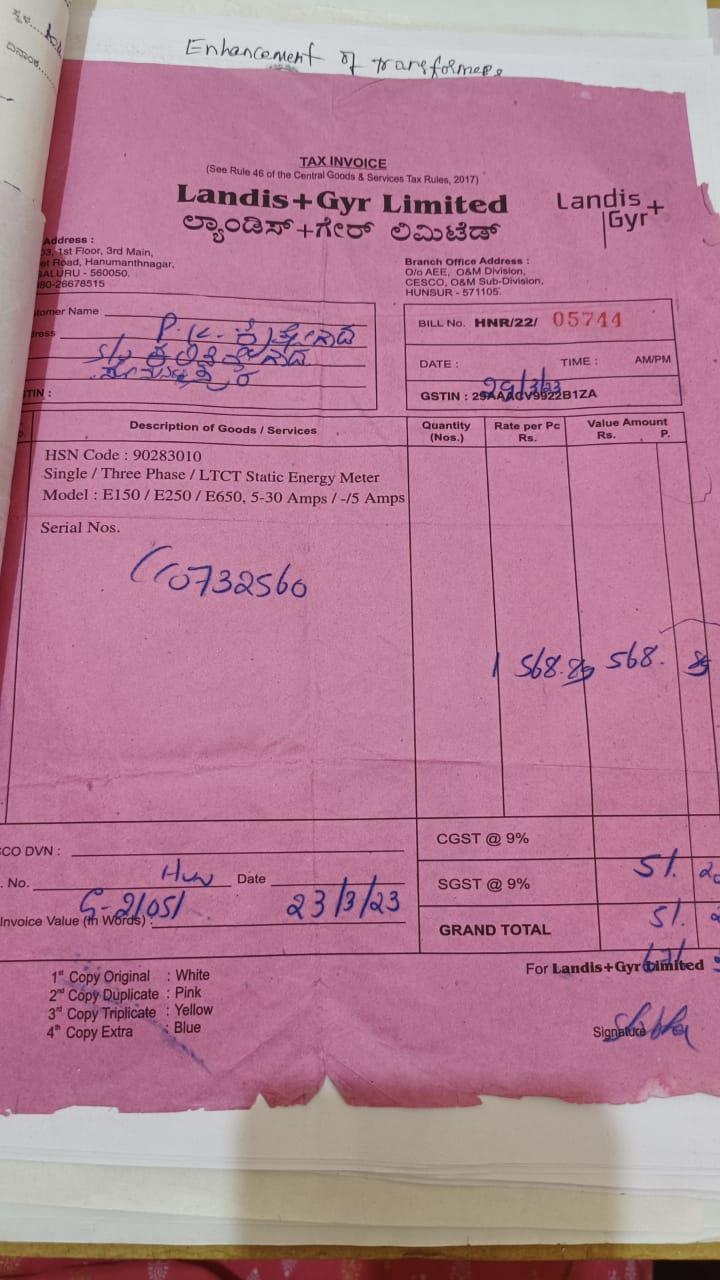 Enhancement of transformers
TAX INVOICE
(See Rule 46 of the Central Goods & Services Tax Rules, 2017)
Landis+Gyr Limited
ಲ್ಯಾಂಡಿಸ್+ಗೇರ್ ಲಿಮಿಟೆಡ್
Landis+
Gyr
Address :
1st Floor, 3rd Main,
Road, Hanumanthnagar,
560050.
26678515
Branch Office Address :
O/o AEE, O&M Division,
CESCO, O&M Sub-Division,
HUNSUR - 571105.
Name
BILL No. HNR/22/ 05744
DATE : 29/3/23 TIME : AM/PM
GSTIN :
Description of Goods / Services
Quantity (Nos.)
Rate per Pc Rs.
Value Amount Rs. P.
HSN Code : 90283010
Single / Three Phase / LTCT Static Energy Meter
Model : E150 / E250 / E650, 5-30 Amps / -/5 Amps
Serial Nos.
10732560
1 568. 568.
DVN :
No. Date
23/3/23
Invoice Value (In Words) :
CGST @ 9% 51.
SGST @ 9% 51.
GRAND TOTAL
1st Copy Original : White
2nd Copy Duplicate : Pink
3rd Copy Triplicate : Yellow
4th Copy Extra : Blue
For Landis+Gyr Limited
Signature